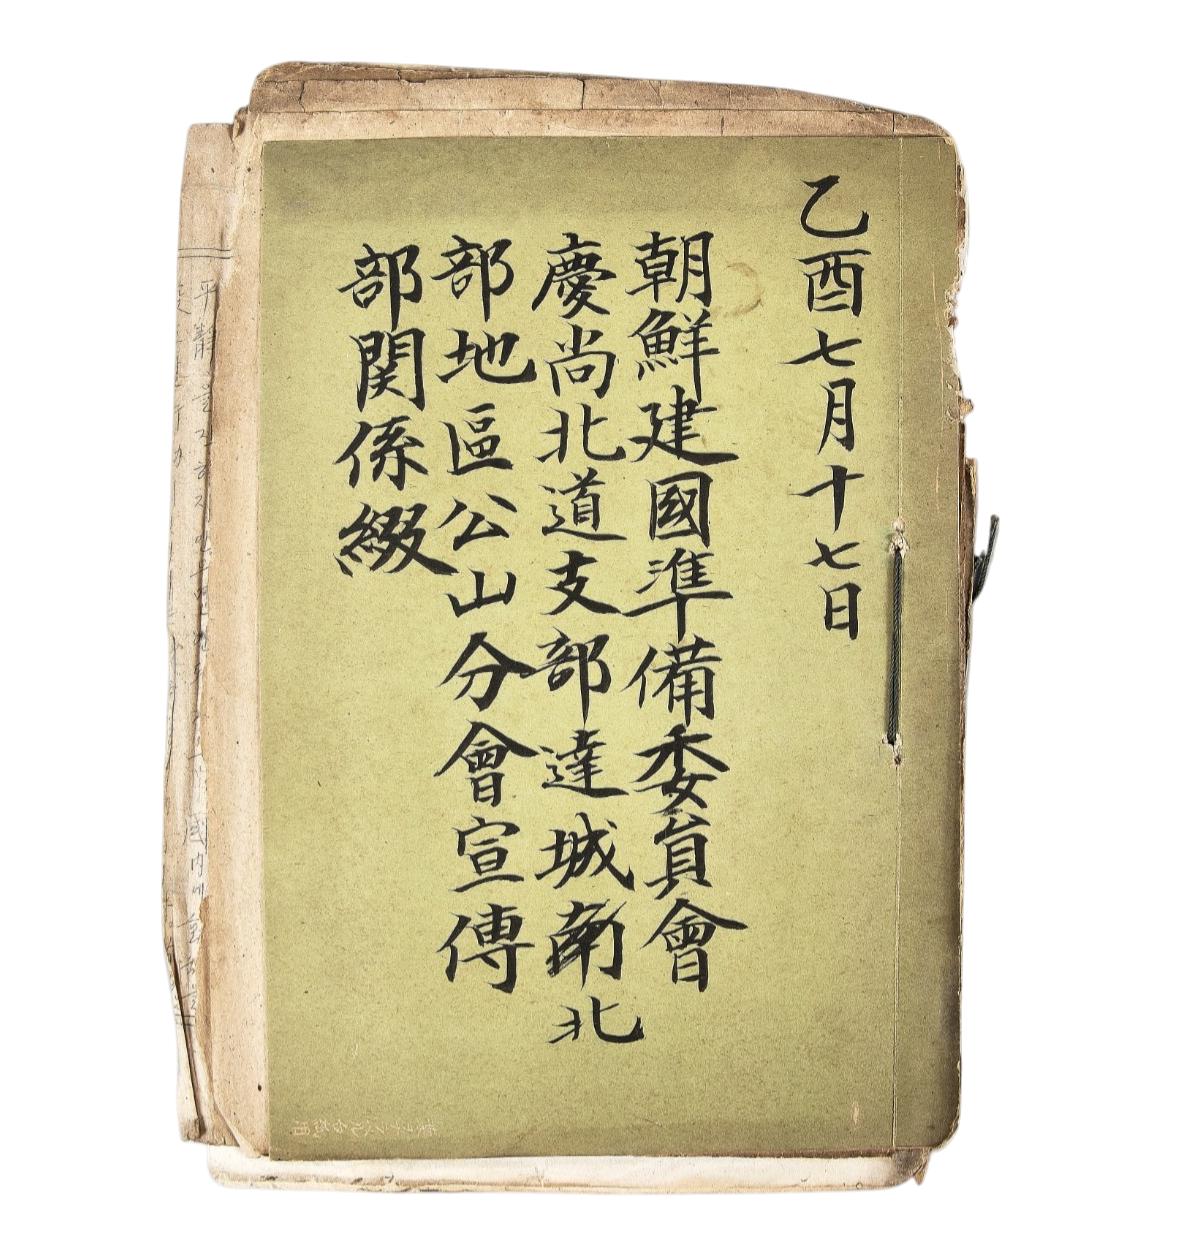 乙酉七月十七日
朝鮮建國準備委員會
慶尚北道支部達城南北
部地區公山分會宣傳
部関係綴
國内